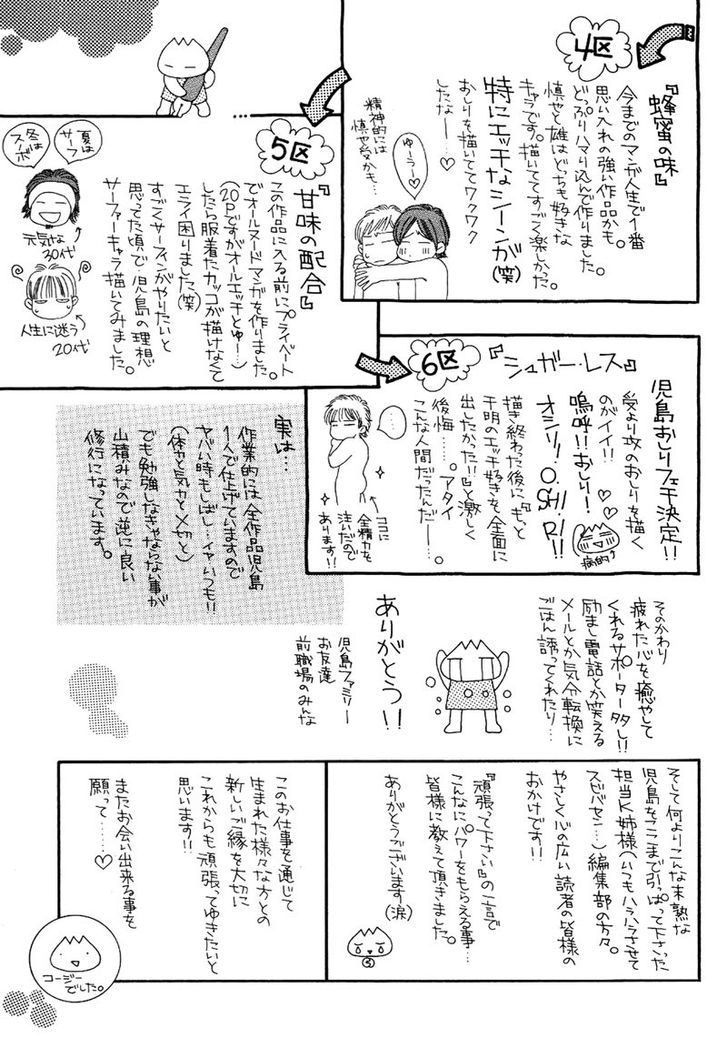 4区
『蜂蜜の味』
今までのマンガ人生で1番
思い入れの強い作品かも。
どっぷりハマり込んで作りました。
慎也と雄はどっちも好きな
キャラです。描いててすごく楽しかった。
特にエッチなシーンが(笑)
おしりを描いててワクワク
したな──♡
ゆーうー♡
精神的には
慎也受かも…
5区
『甘味の配合』
この作品に入る前にプライベート
でオールヌードマンガを作りました。
(20Pですがオールエッチとゆー…)
したら服着たカッコが描けなくて
エライ困りました。(笑)
すごくサーフィンがやりたいと
思ってた頃で、児島の理想
サーファーキャラ描いてみました。
夏は
サーフ
冬は
スノボ
元気な
30代
人生に迷う
20代
6区
『シュガー・レス』
児島おしりフェチ決定!!
受より攻のおしりを描く
のがイイ!!♡♡
嗚呼!!おしり!
オシリ!O.SHI.RI!!
病的
描き終わった後に『もっと
千明のエッチ好きを全面に
出したかった!!』と激しく
後悔……。アタイ
こんな人間だったんだー…。
……
ココに
全精力を
注いだので
あります!!
実は…
作業的には全作品児島
1人で仕上げていますので
ヤバい時もしばし…イヤいつも!!
(体力と気力と〆切と)
でも勉強しなきゃならない事が
山積みなので逆に良い
修行になっています。
そのかわり
疲れた心を癒やして
くれるサポーター多し!!
励まし電話とか笑える
メールとか気分転換に
ごはん誘ってくれたり…
ありがとう!!
児島ファミリー
お友達
前職場のみんな
そして何よりこんな未熟な
児島をここまで引っぱって下さった
担当K姉様(いつもハラハラさせて
スビバセン…)編集部の方々。
やさしく心の広い読者の皆様の
おかげです!!
『頑張って下さい』の一言で
こんなにパワーをもらえる事…
皆様に教えて頂きました。
ありがとうございます(涙)
このお仕事を通じて
生まれた様々な方との
新しいご縁を大切に
これからも頑張ってゆきたいと
思います!!
またお会い出来る事を
願って……♡
コージー
でした。